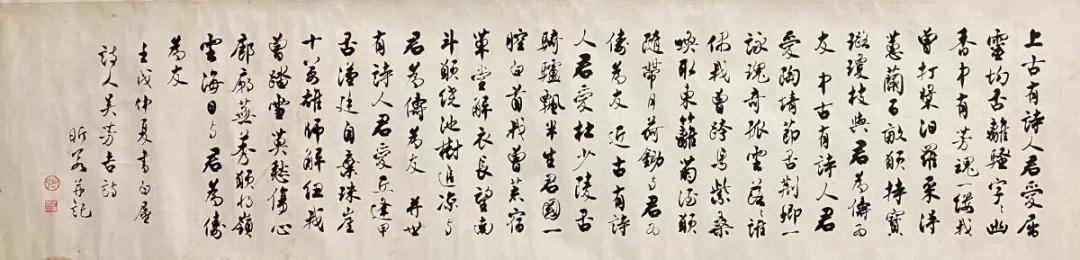 上古有詩人君愛屈
靈均吾離騷字字幽
香中有芳魂一縷我
曾打槳汨羅采得
蕙蘭百畝願持寶
璐瓊枝與君為儔為
友 中古有詩人君
愛陶靖節吾荆卿一
詠瑰奇孤雲落落誰
偶我曾跨馬柴桑
喚取東籬菊酒願
隨帶月荷鋤與君為
儔為友 近古有詩
人君愛杜少陵吾
騎驢飄半生君國一
腔白首我曾宿
草堂解衣長望南
斗願繞池樹追凉與
君為儔為友 并世
有詩人君愛丘逢甲
吾漢廷自棄珠崖
十萬雄師解紐我
曾踏雪英愁傷心
廊蕪秀願為嶺
雲海日與君為儔
為友
壬戌仲夏書白屋
詩人吴芳吉詩
昕若并記